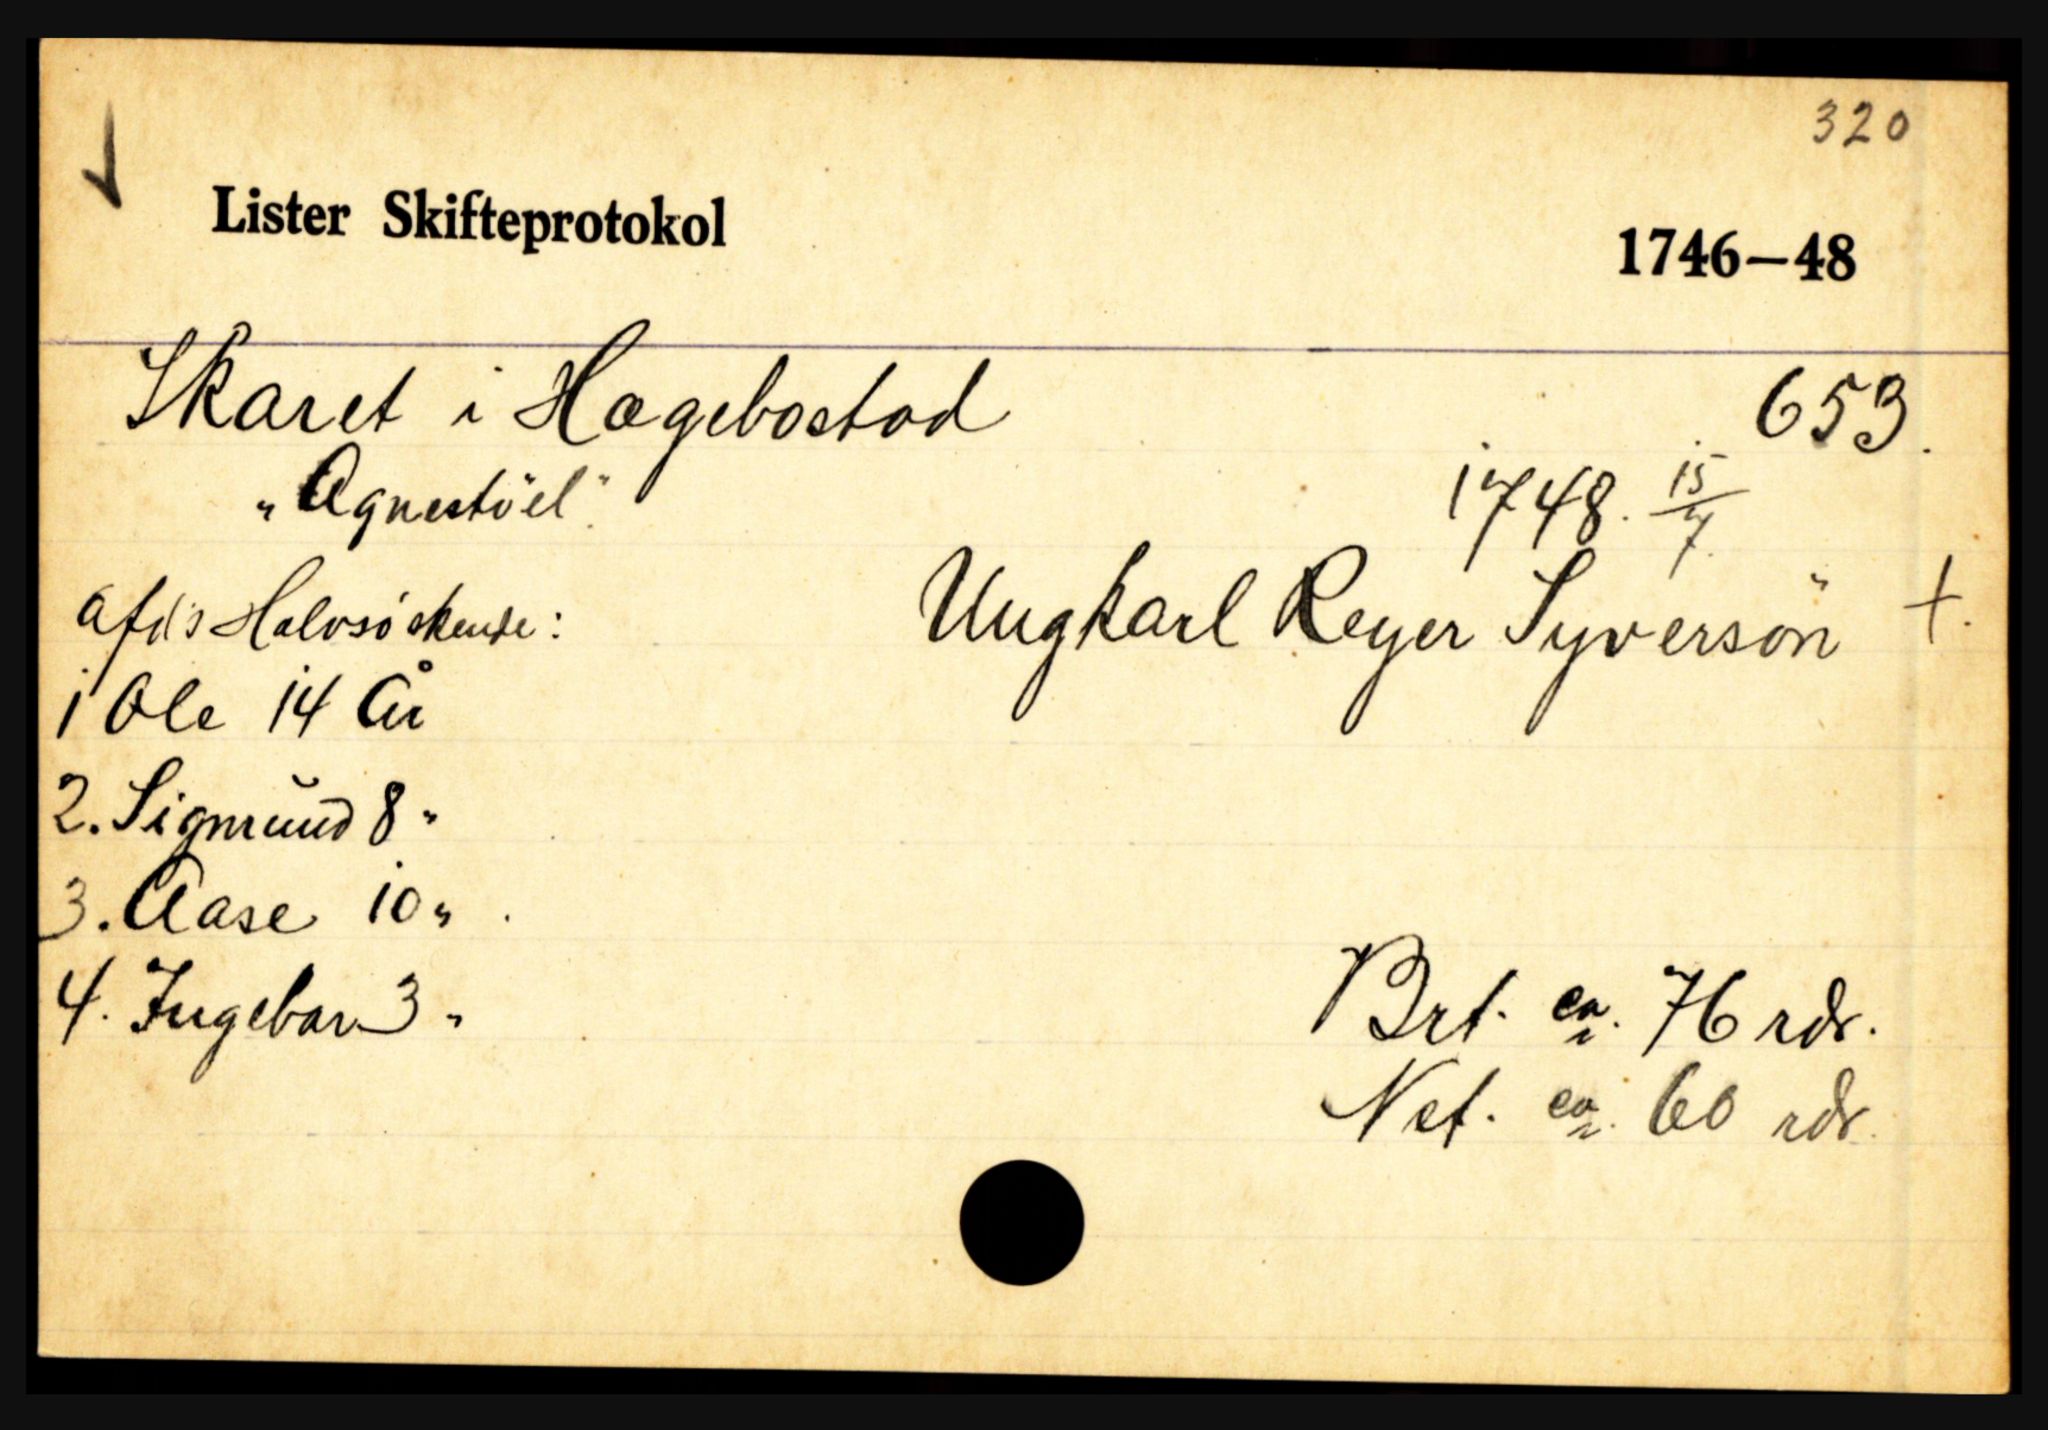 320
Lister Skifteprotokol 1746—48
Skaret i Hægebostad 653.
„Agnestöel" 1748. 15/7.
Ungkarl Reyer Syversön +.
afd's Halvsöskende:
1 Ole 14 År
2. Sigmund 8 "
3. Aase 10 "
4. Ingebor 3 "
Brt. ca. 76 rdr.
Net. ca. 60 rdr.